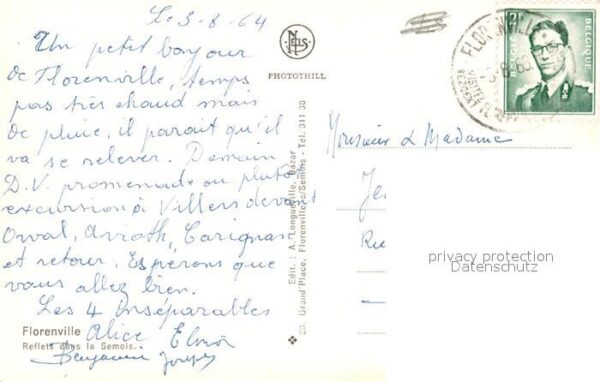 Le 3-8-64
Un petit bonjour
de Florenville, temps
pas très chaud mais
de pluie, il parait qu'il
va se relever. Demain
D.V. promenade ou plutôt
excursion à Villers devant
Orval, Avioth, Carignan
et retour. Espérons que
vous allez bien.
Les 4 Inséparables
Alice
Benjamin
Florenville
Reflets dans la Semois.
NELS
PHOTOTHILL
Edit. : A. Longueville, Bazar
23, Grand'Place, Florenville s/Semois - Tél. 311 36
FLORENVILLE
2F
BELGIQUE
Monsieur & Madame
privacy protection
Datenschutz